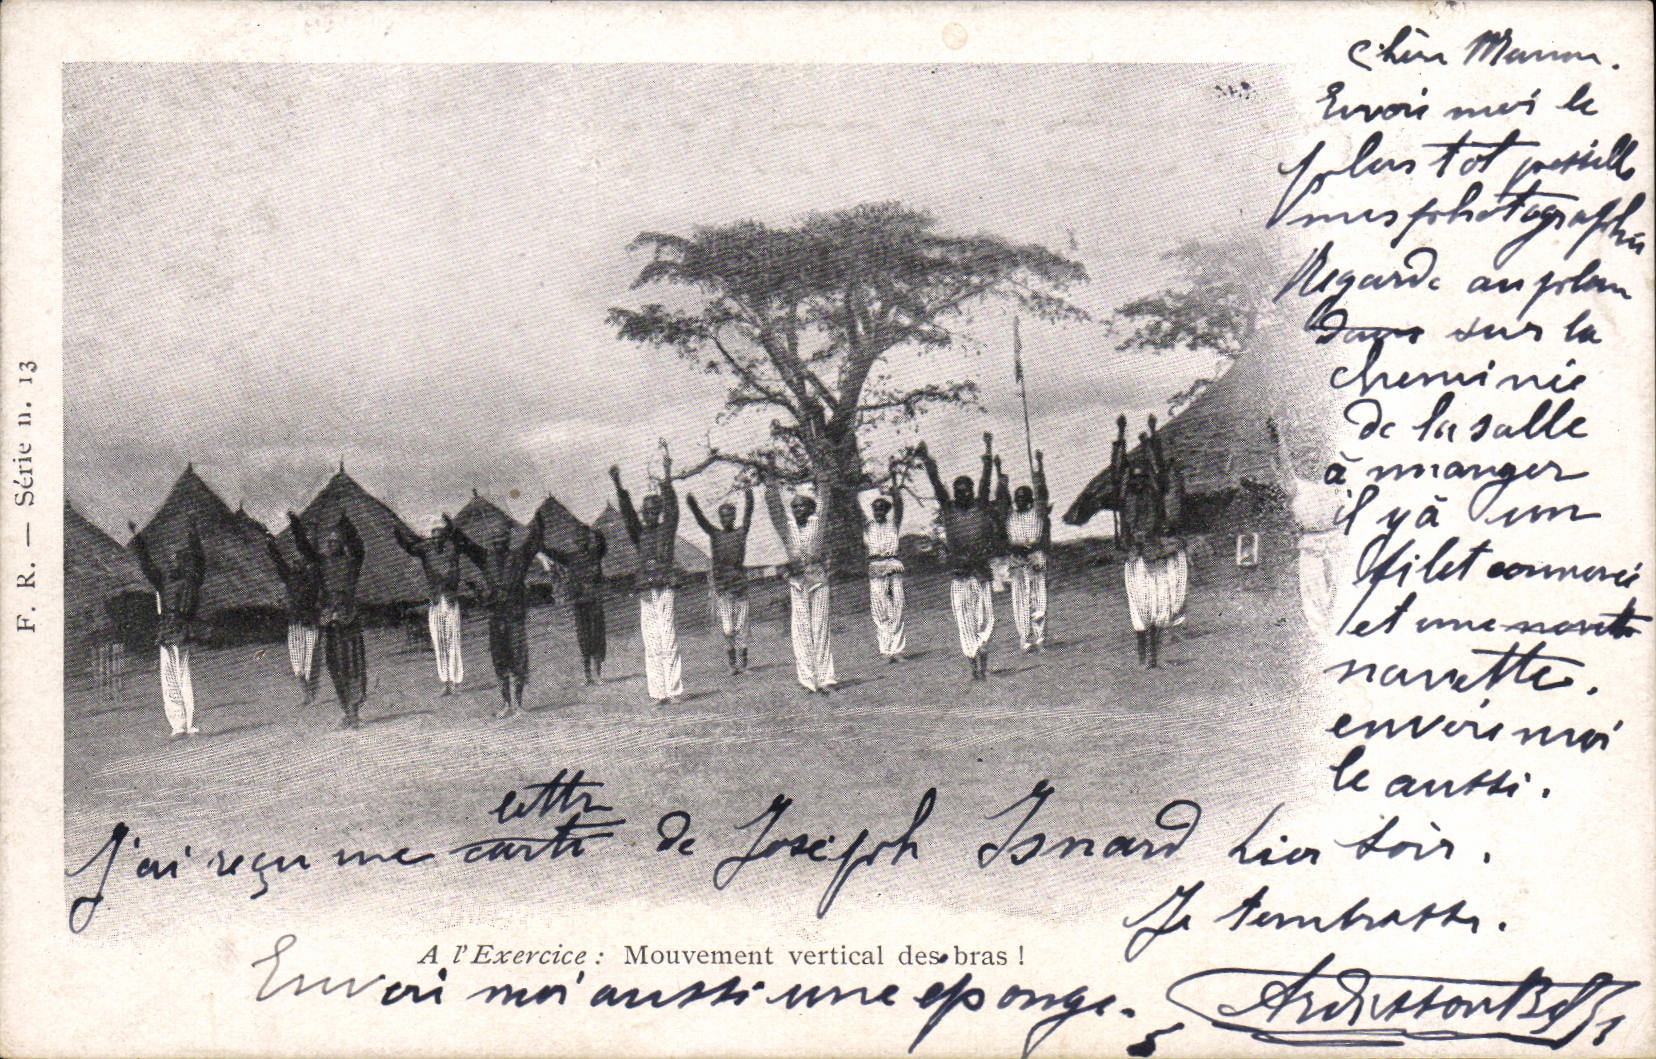 F. R. — Série n. 13
Chère Manon.
Envoi moi le
plus tot possible
mes photographies
Regarde au plan
dans sur la
cheminée
de la salle
à manger
il y à un
filet commencé
et une navette
navette.
envoie moi
le aussi.
lettre
J'ai reçu une carte de Joseph Isnard hier soir.
Je tembrasse.
A l'Exercice : Mouvement vertical des bras !
Envoi moi aussi une eponge.